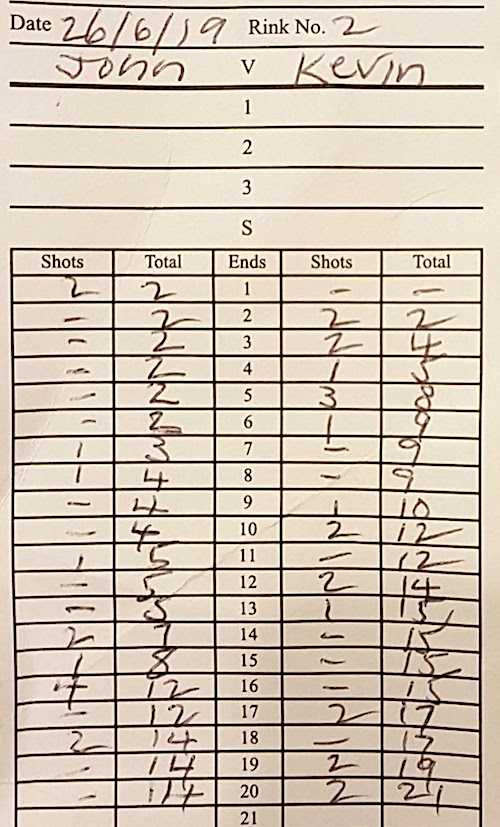 Date 26/6/19 Rink No. 2
John V Kevin
1
2
3
S
Shots Total Ends Shots Total
2 2 1 - -
- 2 2 2 2
- 2 3 2 4
- 2 4 1 5
- 2 5 3 8
- 2 6 1 9
1 3 7 - 9
1 4 8 - 9
- 4 9 1 10
- 4 10 2 12
1 5 11 - 12
- 5 12 2 14
- 5 13 1 15
2 7 14 - 15
1 8 15 - 15
4 12 16 - 15
- 12 17 2 17
2 14 18 - 17
- 14 19 2 19
- 14 20 2 21
21